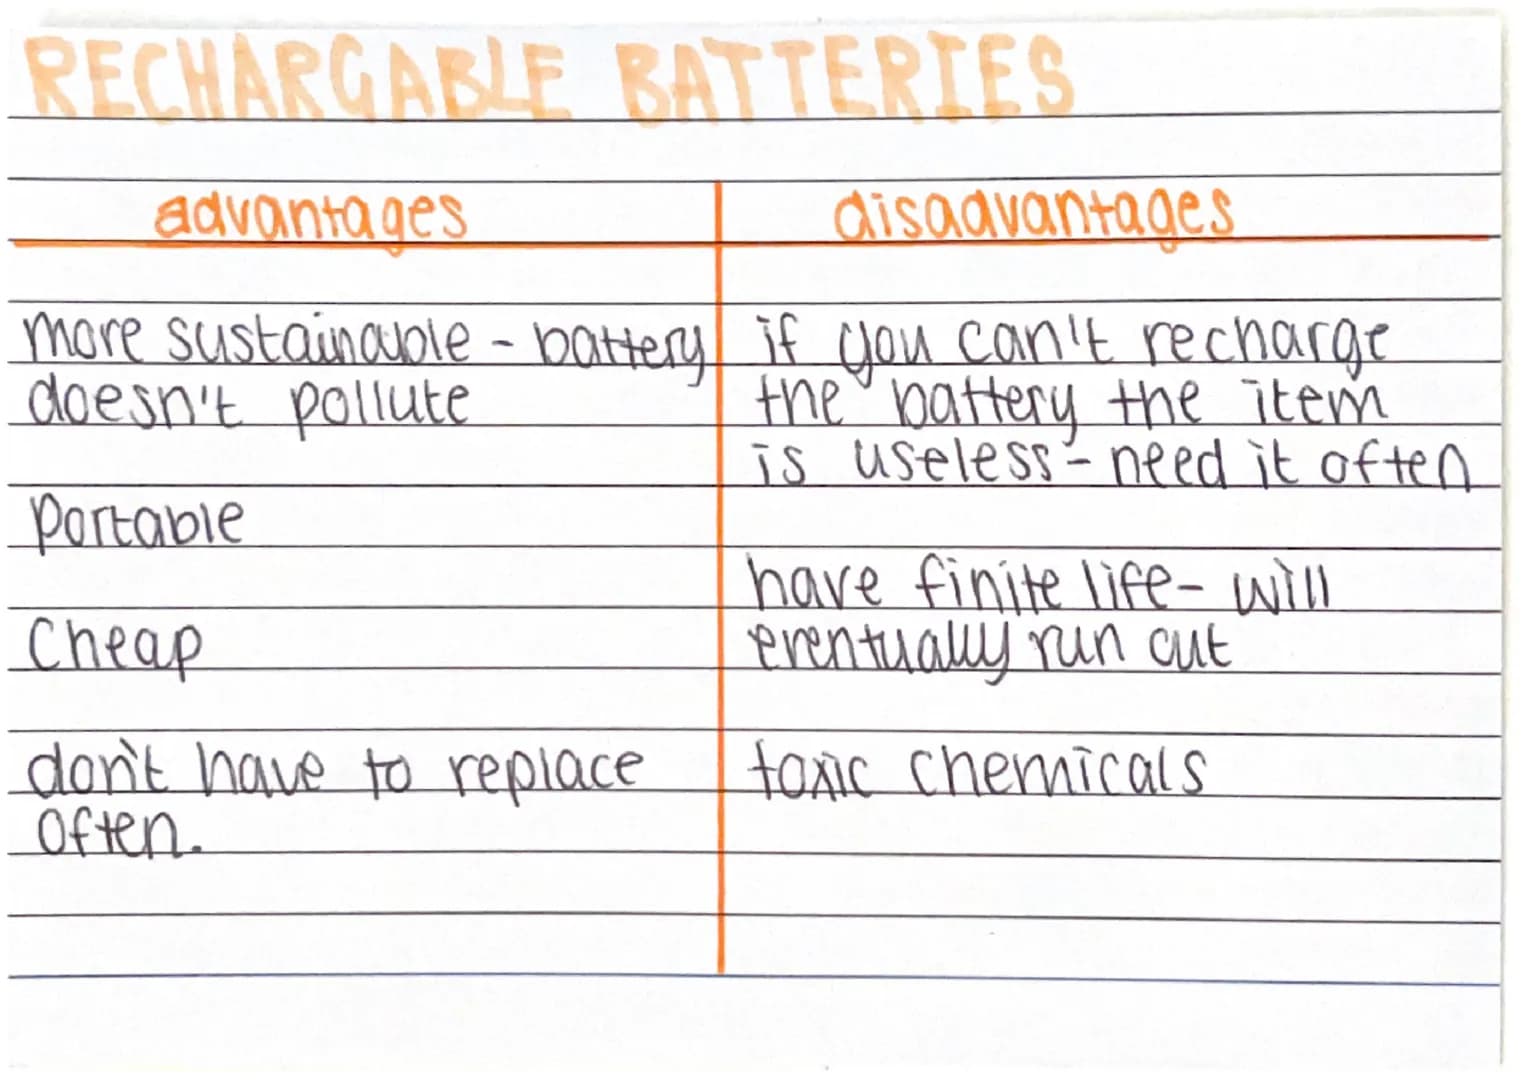 RECHARGABLE BATTERIES
advantages
disadvantages
more sustainable - battery
doesn't pollute
portable
Cheap
don't have to replace
often.
if you can't recharge
the battery the item
is useless - need it often
have finite life - will
eventually run out
toxic chemicals